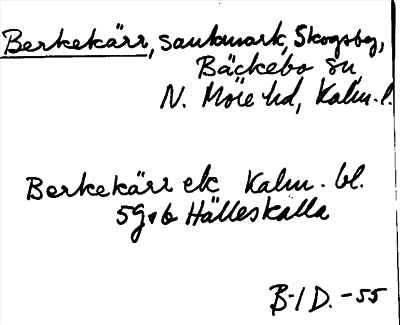 Berkekärr, sankmark, Skogsby,
Bäckebo sn
N. Möre hd, Kalm. l.
Berkekärr ek Kalm. bl.
5G⋅b Hälleskalla
B-I D. -55